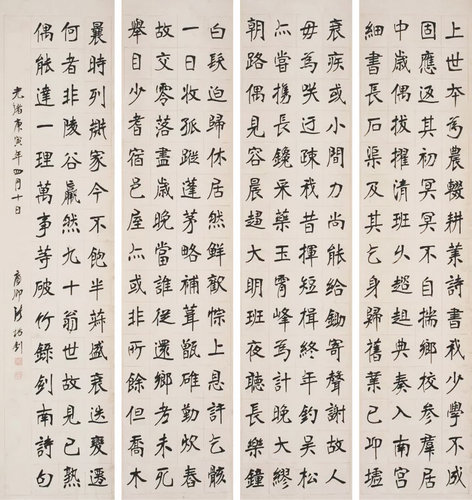 上世本為農輟耕業詩書我少學不成
固應返其初冥冥不自揣鄉校參羣居
中歲偶拔擢清班超趨典奏入南宮
細書長石渠及其乞身歸舊業已邱墟
衰疾或力尚能給鋤寄聲謝故人
毋為笑迂疎我昔揮短楫終年釣吳松
亦當携長鑱采藥玉霄峰為計晚大繆
朝路偶見容晨趨大明班夜聽長樂鐘
白髮迫歸休居然鮮歡悰上恩許乞骸
一日收孤蹤蓬茅略補葺甑碓勤炊舂
故交零落盡歲晚當誰從還鄉者未死
舉目少耆宿邑屋亦或非所餘但喬木
曩時列鼎家今不飽半菽盛衰迭變遷
何者非陵谷羸然九十翁世故見已熟
偶能達一理萬事等破竹錄劍南詩句
光緒庚寅年四月十日